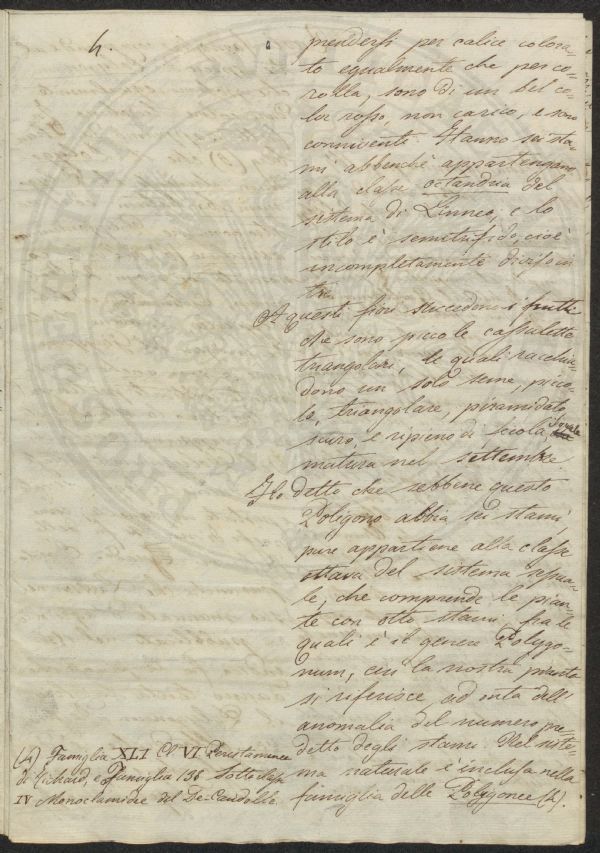 4.
prendersi per calice colora-
to egualmente che per co-
rolla, sono di un bel co-
lor rosso, non carico, e sono
conniventi. Hanno sei sta-
mi abbenchè appartengano
alla classe octandria del
sistema di Linneo, e lo
stilo è semitrifido, cioè
incompletamente diviso in
tre.
A questi fiori succedono i frutti
che sono piccole cassulette
triangolari, le quali racchiu-
dono un solo seme, picco-
lo, triangolare, piramidato,
scuro, e ripieno di fecola, il quale
matura nel settembre.
Ho detto che sebbene questo
Poligono abbia sei stami,
pure appartiene alla classe
ottava del sistema sessua-
le, che comprende le pian-
te con otto stami, fra le
quali è il genere Polygo-
num, cui la nostra pianta
si riferisce ad onta dell'
anomalia del numero pre-
detto degli stami. Nel siste-
ma naturale è inclusa nella
famiglia delle Polygonee (4).
(4) Famiglia XLI Cl. VI Peristaminee
di Richard, e Famiglia 198 Sottoclasse
IV Monoclamidee del De-Candolle.